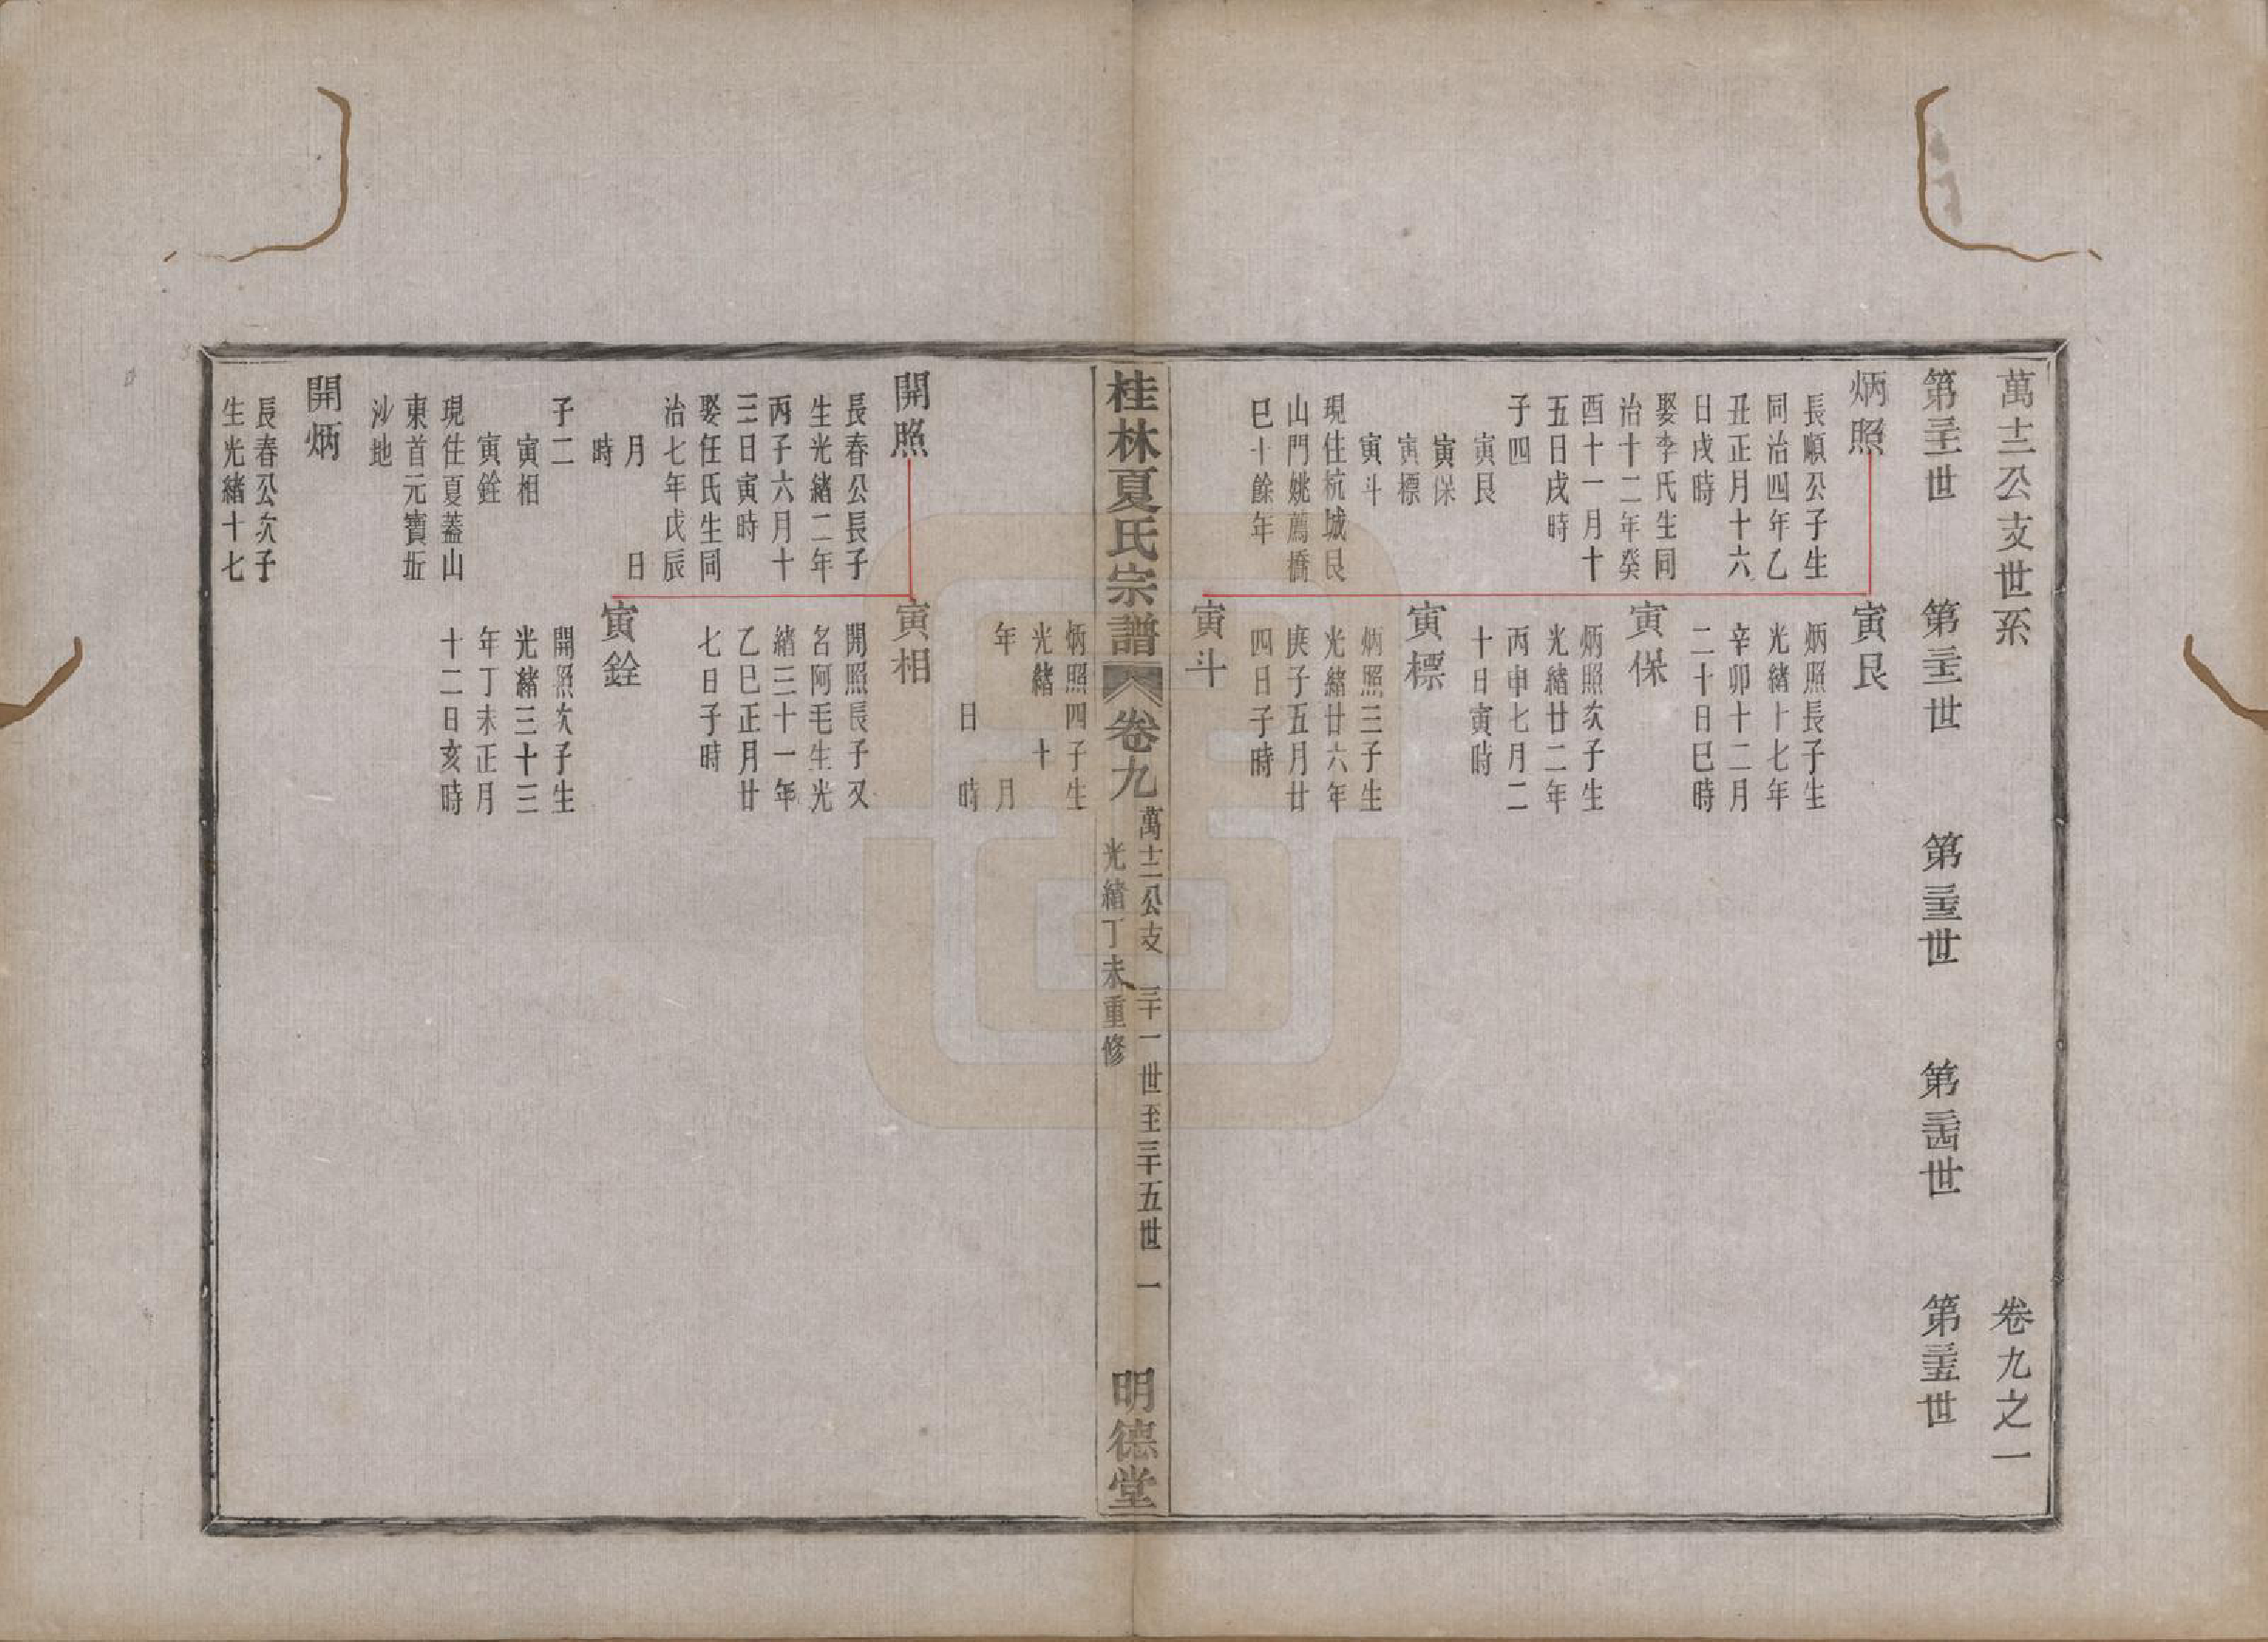 萬十二公支世系　卷九之一
第三十一世　第三十二世　第三十三世　第三十四世　第三十五世
炳照
長順公子生
同治四年乙
丑正月十六
日戌時
娶李氏生同
治十二年癸
酉十一月十
五日戌時
子四
寅艮
寅保
寅標
寅斗
現住杭城艮
山門姚薦橋
巳十餘年
寅艮
炳照長子生
光緒十七年
辛卯十二月
二十日巳時
寅保
炳照次子生
光緒廿二年
丙申七月二
十日寅時
寅標
炳照三子生
光緒廿六年
庚子五月廿
四日子時
寅斗
桂林夏氏宗譜　卷九　萬十二公支　三十一世至三十五世　一
光緒丁未重修
明德堂
炳照四子生
光緒　十
年　　月
日　時
開照
長春公長子
生光緒二年
丙子六月十
三日寅時
娶任氏生同
治七年戊辰
月　日
時
子二
寅相
寅銓
現住夏蓋山
東首元寶坵
沙地
寅相
開照長子又
名阿毛生光
緒三十一年
乙巳正月廿
七日子時
寅銓
開照次子生
光緒三十三
年丁未正月
十二日亥時
開炳
長春公次子
生光緒十七